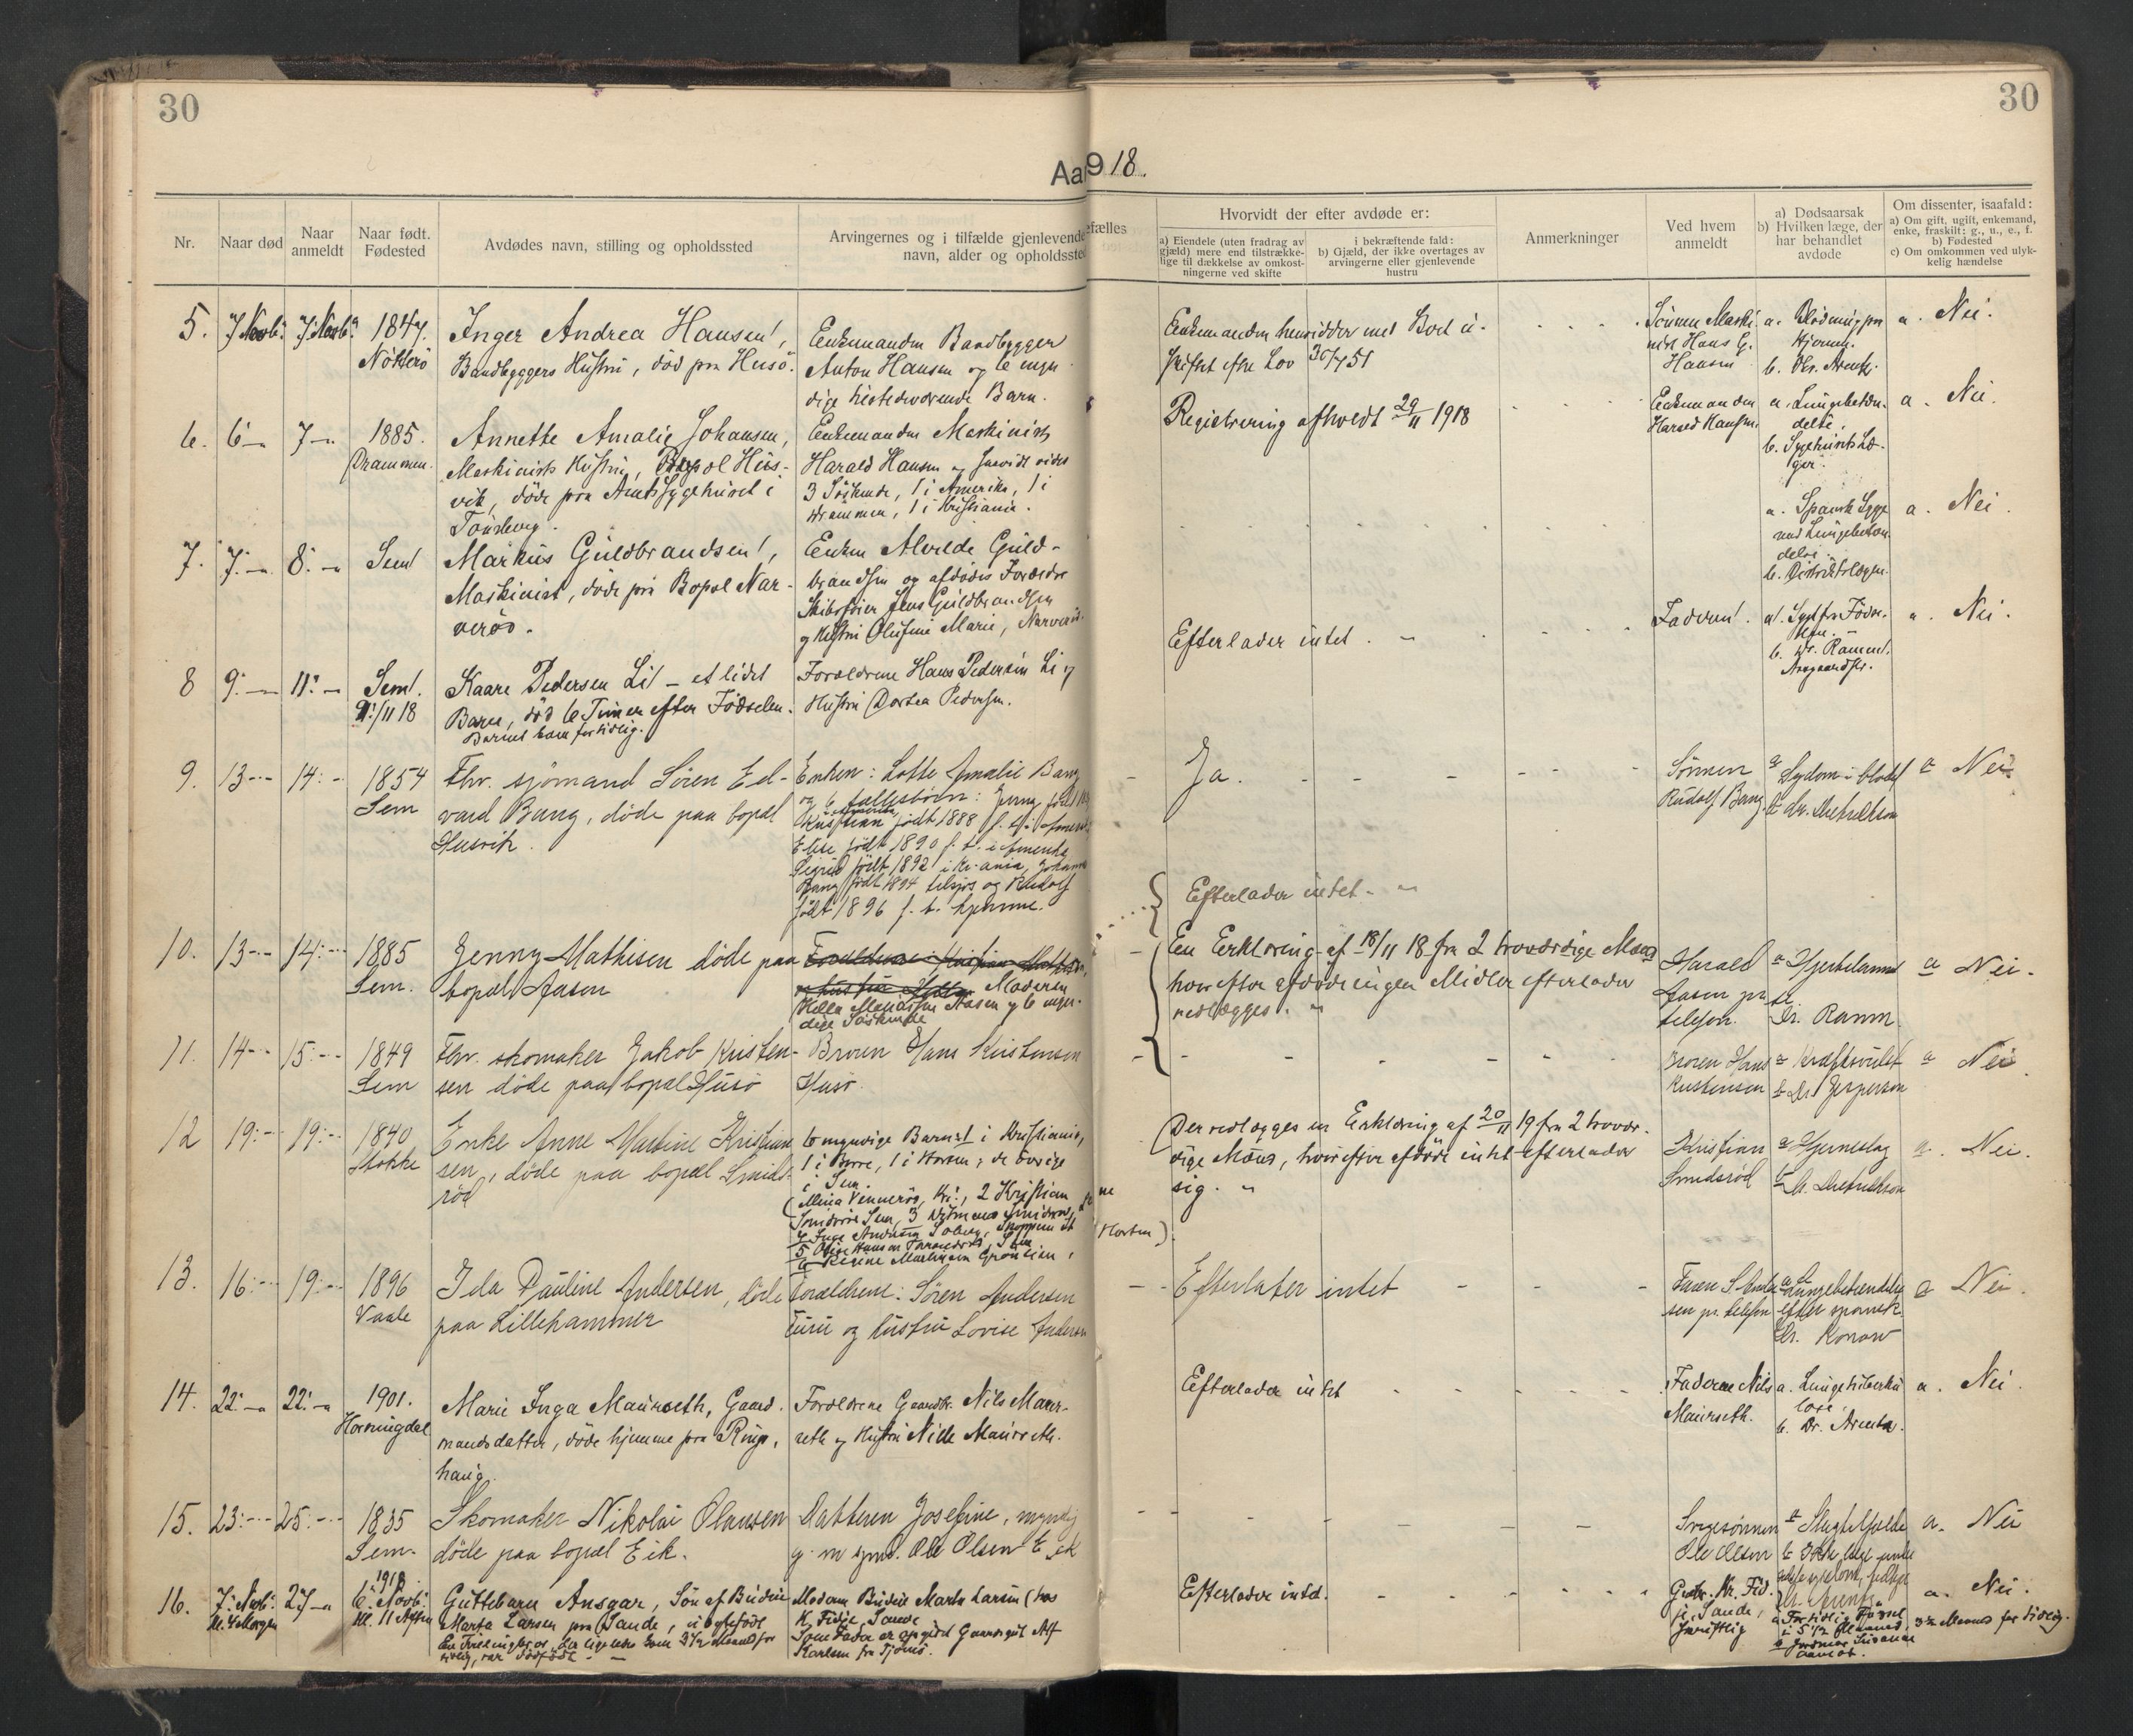 30
30
Aa
918.
Nr.
Naar død
Naar anmeldt
Naar født. Fødested
Avdødes navn, stilling og opholdssted
Arvingernes og i tilfælde gjenlevende
navn, alder og opholdssted
efælles
Hvorvidt der efter avdøde er:
a) Eiendele (uten fradrag av gjæld) mere end tilstrække-lige til dækkelse av omkost-ningerne ved skifte
i bekræftende fald:
b) Gjæld, der ikke overtages av arvingerne eller gjenlevende hustru
Anmerkninger
Ved hvem anmeldt
a) Dødsaarsak
b) Hvilken læge, der har behandlet avdøde
Om dissenter, isaafald:
a) Om gift, ugift, enkemand, enke, fraskilt: g., u., e., f.
b) Fødested
c) Om omkommen ved ulyk-kelig hændelse
5. 7 Novb. 7 Novb. 1847. Nøtterö
Inger Andrea Hansen,
Baadbyggers Hustru, död paa Husö.
Enkemanden Baadbygger
Anton Hansen og 6 myn
dige hjemmeværende Barn.
Enkemanden hensidder med Boet u-
skiftet efter Lov 30/7 51
Sönnen Maski-
nist Hans G.
Hansen
a. Blödning paa
Hjernen.
b. Dr. Arentz.
a. Nei.
6. 6 7 1885. Drammen.
Annette Amalie Johansen,
Maskinists Hustru, Bopæl Hus-
vik, döde paa Amtssygehuset i
Tönsberg.
Enkemanden Maskinist
Harald Hansen og saavidt vides
3 Söskende, 1 i Amerika, 1 i
Drammen, 1 i Kristiania.
Registrering afholdt 29/11 1918
Enkemanden
Harald Hansen.
a. Lungebetæn-
delse.
b. Sygehusets Læ-
ger.
a. Nei.
7. 7. 8. Sem
Markus Guldbrandsen,
Maskinist, döde paa Bopæl Nar-
veröd.
Enken Alvilde Guld-
brandsen og afdödes Forældre
Skibsfører Jens Guldbrandsen
og Hustru Olufine Marie, Narveröd.
a. Spansk Syge
med Lungebetæn
delse.
b. Distriktslægen.
a. Nei.
8 9. 11. Sem. 9/11 18
Kaare Pedersen Li – et lidet
Barn, död 6 Timer efter Födselen.
Barnet kom for tidlig.
Forældrene Hans Pedersen Li og
Hustru Dortea Pedersen.
Efterlader intet.
Faderen.
b. Dr. Ramm,
a. Nei.
9. 13 14. 1854 Sem
Fhv. sjømand Sören Ed-
vard Bang, döde paa bopæl
Husvik.
Enken: Lotte Amalie Bang
og 6 fællesbörn: Jenny födt
Kristian födt 1888 f. t. i Amerika
Elise födt 1890 f. t. i Amerika
Sigrid födt 1892 i Kr.ania, Johannes
Bang födt 1894 tilsjøs og Rudolf
födt 1896 f. t. hjemme.
Ja.
Sönnen
Rudolf Bang
a Sygdom i blodet
b dr. Diedrichson
a Nei
Efterlader intet
10. 13 14. 1885 Sem.
Jenny Mathisen döde paa
bopæl Aasen
Moderen
Hella Mathisen Aasen og 6 myn-
dige Söskende
En Erklæring af 18/11 18 fra 2 troværdige Mænd
hvorefter afdöde ingen Midler efterlader
vedlægges.
Harald
Aasen pr.
telefon.
a Hjertelammelse
b.
Dr. Ramm.
a Nei.
11. 14 15. 1849 Sem
Fhv. skomaker Jakob Kristen-
sen döde paa bopæl Husö
Broren Hans Kristensen
Husö.
Broren Hans
Kristensen
a Kræftsvulst
b Dr. Jespersen
a Nei.
12 19. 19. 1840 Stokke
Enke Anne Martine Kristian
sen, döde paa bopæl Smids-
röd
6 myndige Barn: 1 i Kristiania,
1 i Borre, 1 i Horten; de övrige
i Sem.
(Horten)
Der vedlægges en Erklæring af 20/11 19 fra 2 trovær-
dige Mænd, hvorefter afdöde intet efterlader
sig.
Kristian
Smidsröd
a Hjerneslag
b Dr. Diedrichson
a. Nei.
13. 16. 19. 1896 Vaale
Ida Pauline Andersen, döde
paa Lillehammer
Forældrene: Sören Andersen
Furu og hustru Lovise Andersen
Efterlater intet
Faren S. Ander
sen pr. telefon
a Lungebetændelse
efter spansk.
Dr. Konow
a Nei.
14. 22. 22. 1901. Horningdal
Marie Inga Maurseth, Gaard.
mandsdatter, döde hjemme paa Rings-
haug.
Forældrene Gaardbr. Nils Maur-
seth og Hustru Nille Maurseth.
Efterlader intet
Faderen Nils
Maurseth.
a. Lungetuberku
lose.
b. Dr. Arentz.
a. Nei.
15. 23. 25. 1835 Sem.
Skomaker Nikolai Olausen
döde paa bopæl Eik.
Datteren Josefine, myndig
g. m. sjmd. Ole Olsen Eik
Svigersönnen
Ole Olsen
a. Nei
16. 7. Novb. Kl. 4 Morgen 27 1918 6. Novb. Kl. 11 Aften
Guttebarn Ansgar, Sön af Budeie
Marta Larsen paa Sande, uægtefödt
En Tvillingbror, der ligeledes kom 3 1/2 Maaned for
tidlig, var dödfödt
Moderen Budeie Marta Larsen (hos
K. Fidje, Sande
Som Fader er opgivet Gaardsgut Alf
Karlsen fra Tjömö.
Efterlader intet.
Gbr. Kr. Fid-
je, Sande,
skriftlig
a For tidlig Födsel
i 5 1/2 Maaned, 3 1/2 Maaned for tidlig.
a. Nei.